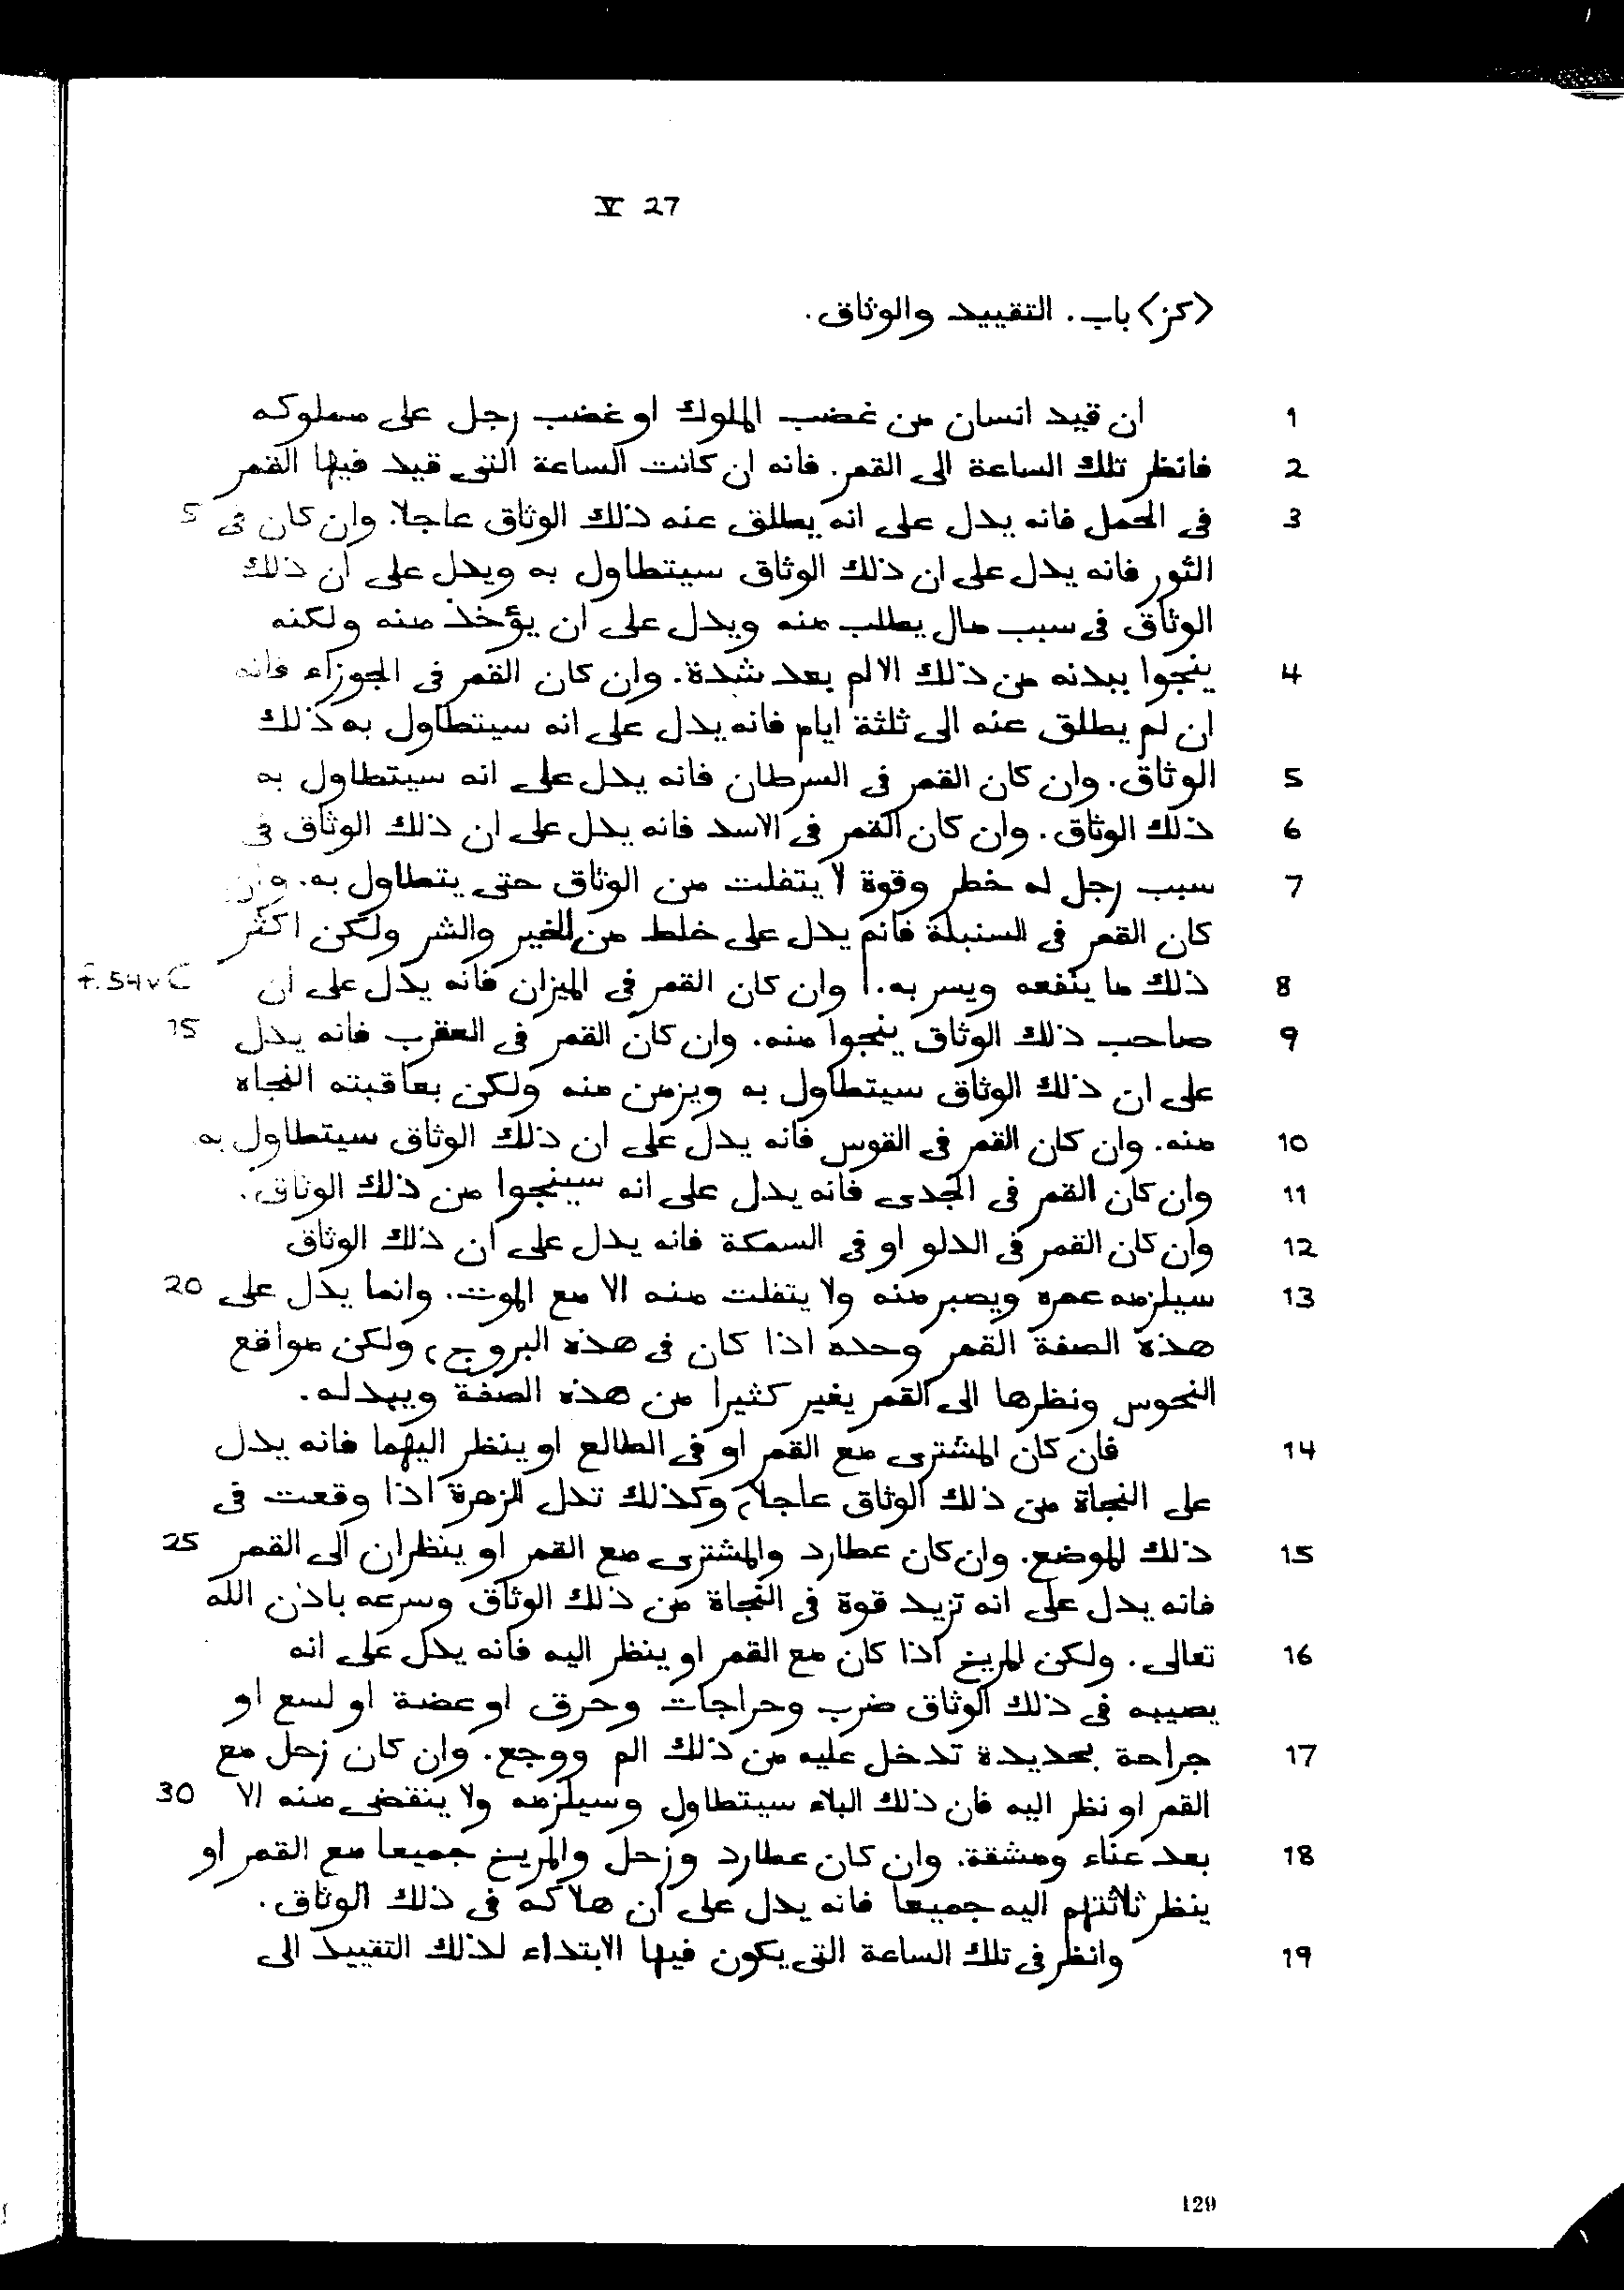 V 27
<كز> باب. التقييد والوثاق.
1 ان قيد انسان من غضب الملوك او غضب رجل على مملوكه
2 فانظر تلك الساعة الى القمر. فانه ان كانت الساعة التى قيد فيها القمر
3 فى الحمل فانه يدل على انه يطلق عنه ذلك الوثاق عاجلا. وان كان فى 5
الثور فانه يدل على ان ذلك الوثاق سيتطاول به ويدل على ان ذلك
الوثاق فى سبب مال يطلب منه ويدل على ان يؤخذ منه ولكنه
4 ينجوا ببدنه من ذلك الالم بعد شدة. وان كان القمر فى الجوزاء فانه
ان لم يطلق عنه الى ثلثة ايام فانه يدل على انه سيتطاول به ذلك
5 الوثاق. وان كان القمر فى السرطان فانه يدل على انه سيتطاول به
6 ذلك الوثاق. وان كان القمر فى الاسد فانه يدل على ان ذلك الوثاق فى
7 سبب رجل له خطر وقوة لا يتفلت من الوثاق حتى يتطاول به. وان
كان القمر فى السنبلة فانه يدل على خلط من الخير والشر ولكن اكثر
8 ذلك ما ينفعه ويسر به.| وان كان القمر فى الميزان فانه يدل على ان f. 54v C
9 صاحب ذلك الوثاق ينجوا منه. وان كان القمر فى العقرب فانه يدل 15
على ان ذلك الوثاق سيتطاول به ويزمن منه ولكن بعاقبته النجاه
10 منه. وان كان القمر فى القوس فانه يدل على ان ذلك الوثاق سيتطاول به.
11 وان كان القمر فى الجدى فانه يدل على انه سينجوا من ذلك الوثاق.
12 وان كان القمر فى الدلو او فى السمكة فانه يدل على ان ذلك الوثاق
13 سيلزمه عمره ويصبر منه ولا يتفلت منه الا مع الموت. وانما يدل على 20
هذه الصفة القمر وحده اذا كان فى هذه البروج، ولكن مواقع
النحوس ونظرها الى القمر يغير كثيرا من هذه الصفة ويبدله.
14 فان كان المشترى مع القمر او فى الطالع او ينظر اليهما فانه يدل
على النجاة من ذلك الوثاق عاجلا، وكذلك تدل الزهرة اذا وقعت فى
15 ذلك الموضع. وان كان عطارد والمشترى مع القمر او ينظران الى القمر 25
فانه يدل على انه تزيد قوة فى النجاة من ذلك الوثاق وسرعه باذن الله
16 تعالى. ولكن المريخ اذا كان مع القمر او ينظر اليه فانه يدل على انه
يصيبه فى ذلك الوثاق ضرب وحراجات وحرق او عضة او لسع او
17 جراحة بحديدة تدخل عليه من ذلك الم ووجع. وان كان زحل مع
القمر او نظر اليه فان ذلك البلاء سيتطاول وسيلزمه ولا ينقضى منه الا 30
18 بعد عناء ومشقة. وان كان عطارد وزحل والمريخ جميعا مع القمر او
ينظر ثلاثتهم اليه جميعا فانه يدل على ان هلاكه فى ذلك الوثاق.
19 وانظر فى تلك الساعة التى يكون فيها الابتداء لذلك التقييد الى
129